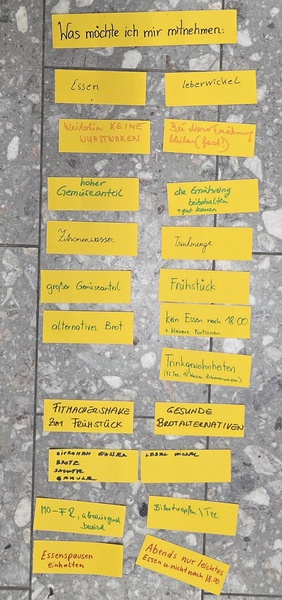 Was möchte ich mir mitnehmen:
Essen
Leberwickel
Weiterhin KEINE
WURSTWAREN
Bei dieser Ernährung
bleiben (fast!)
hoher
Gemüseanteil
die Ernährung
beibehalten
+ gut kauen
Zitronenwasser
Trinkmenge
großer Gemüseanteil
Frühstück
alternatives Brot
kein Essen nach 18:00
+ kleinere Portionen
Trinkgewohnheiten
FITMACHERSHAKE
ZUM FRÜHSTÜCK
GESUNDE
BROTALTERNATIVEN
ZITRONEN WASSER
BROTE
GEMÜSE
MO-FR, überwiegend
basisch
Bittertropfen / Tee
Essenspausen
einhalten
Abends nur leichtes
Essen u. nicht nach 18.00